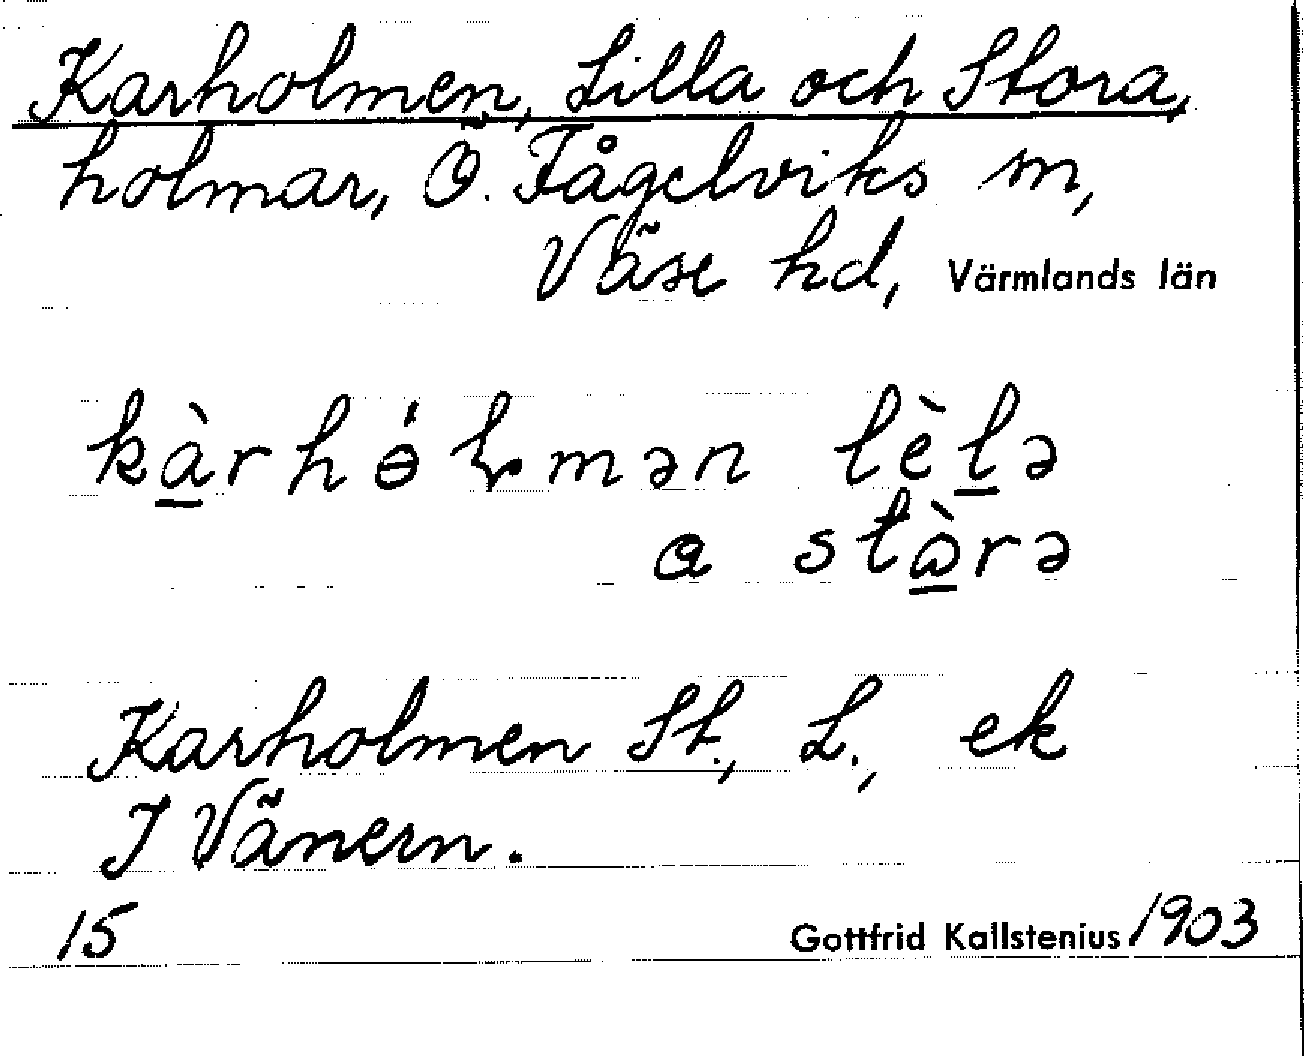 Karholmen, Lilla och Stora,
holmar, Ö. Fågelviks sn,
Väse hd, Värmlands län
kàrhólmən lèlə
a stàrə
Karholmen St., L., ek
I Vänern.
15 Gottfrid Kallstenius 1903